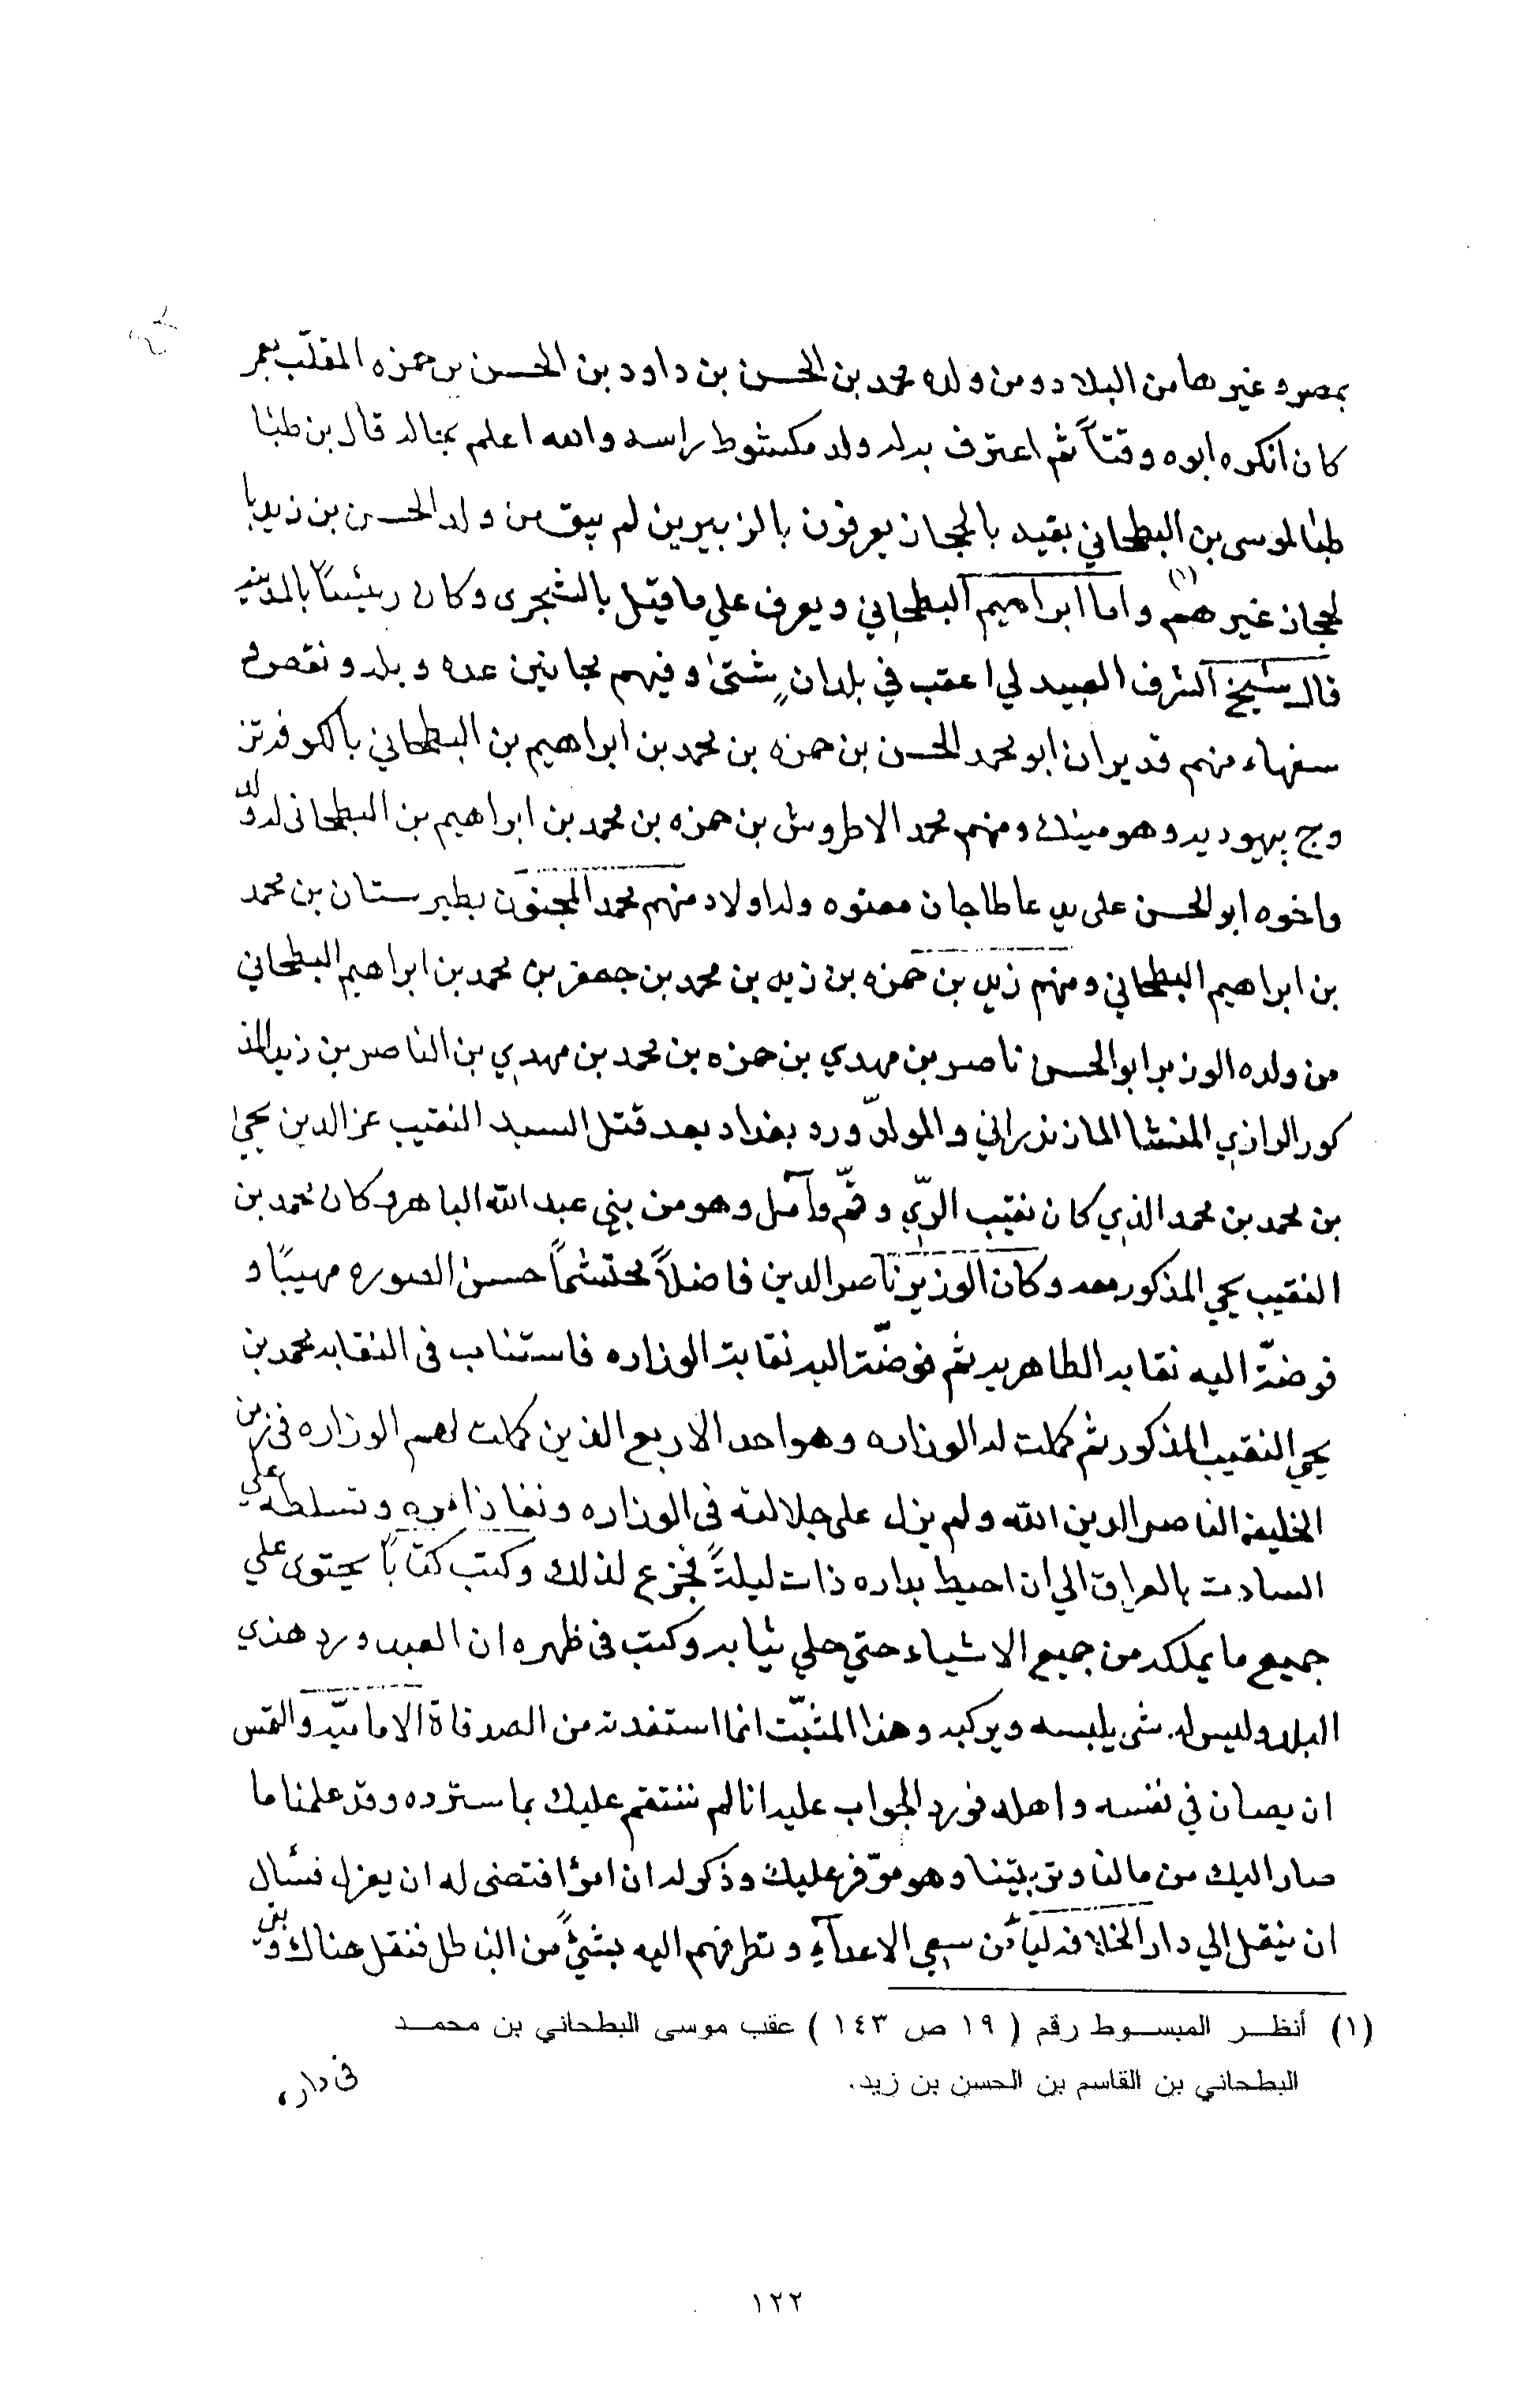 بمصر وغيرها من البلاد ومن ولده محمد بن الحسن بن داود بن الحسن بن حمزه المقلب بعمر
كان انكره ابوه وقتاً ثم اعترف به له ولد مكشوط راسه والله اعلم بحاله قال بن طبا
طبا لموسى بن البطحاني بقيه بالحجاز يعرفون بالزبيرين لم يبق من ولد الحسن بن زيد با
لحجاز غيرهم (١) واما ابراهيم البطحاني ويعرف علي ما قيل بالشجرى وكان رئيسًا بالمدينه
قال شيخ الشرف العبيدلي اعقب في بلدانٍ شتىٰ وفيهم مجانين عده وبله ونقص و
سفهاء منهم قديران ابو محمد الحسن بن حمزه بن محمد بن ابراهيم بن البطحاني بالكوفه تز
وج يهوديه وهو ميناث ومنهم محمد الاطروش بن حمزه بن محمد بن ابراهيم بن البطحانى له ولد
واخوه ابو الحسن على يد عاطا جان معتوه وله اولاد منهم محمد المجنون بطبرستان بن محمد
بن ابراهيم البطحاني ومنهم زيد بن حمزه بن زيد بن محمد بن جعفر بن محمد بن ابراهيم البطحاني
من ولده الوزير ابو الحسن ناصر بن مهدي بن حمزه بن محمد بن مهدي بن الناصر بن زيد المذ
كور الرازي المنشا المازندراني والمولدّ ورد بغداد بعد قتل السيد النقيب عز الدين يحيىٰ
بن محمد بن محمد الذي كان نقيب الرّي وقمّ وآمل وهو من بني عبد الله الباهر وكان محمد بن
النقيب يحي المذكور معه وكان الوزير ناصر الدين فاضلاً محتشماً حسن الصوره مهيبًا و
فوضتّ اليه نقابه الطاهريه ثم فوضتّ اليه نقابت الوزاره فاستناب فى النقابه محمد بن
يحي النقيب المذكور ثم كملت له الوزاره وهو احد الاربع الذين كملت لهم الوزاره فى زمن
الخليفه الناصر الدين الله ولم يزل على جلالته فى الوزاره ونفاذ امره وتسلطه علي
السادت بالعراق الي ان احيط بداره ذات ليلةً فجزع لذلك وكتب كتابًا يحتوى علي
جميع ما يملكه من جميع الاشياء حتي حلي ثيابه وكتب فى ظهره ان العبد ورد هذي
البلد وليس له شى يلبسه ويركبه وهذا المثبّت انما استفدته من الصدقاة الاماميّه والتمس
ان يصان في نفسه واهله فورد الجواب عليه انا لم ننتقم عليك بما سترده وقد علمنا ما
صار اليك من مالنا وتربيّتنا وهو موّفر عليك وذكر له ان امرؤ اقتضى له ان يعزل فسأل
ان ينقل الي دار الخلافه ليأمن من سعي الاعدآء وتطرفهم اليه بشيءً من الباطل فنقل هناك وبقي
(١) أنظر المبسوط رقم ( ١٩ ص ١٤٣ ) عقب موسى البطحاني بن محمد
البطحاني بن القاسم بن الحسن بن زيد.
فى داره
١٢٢